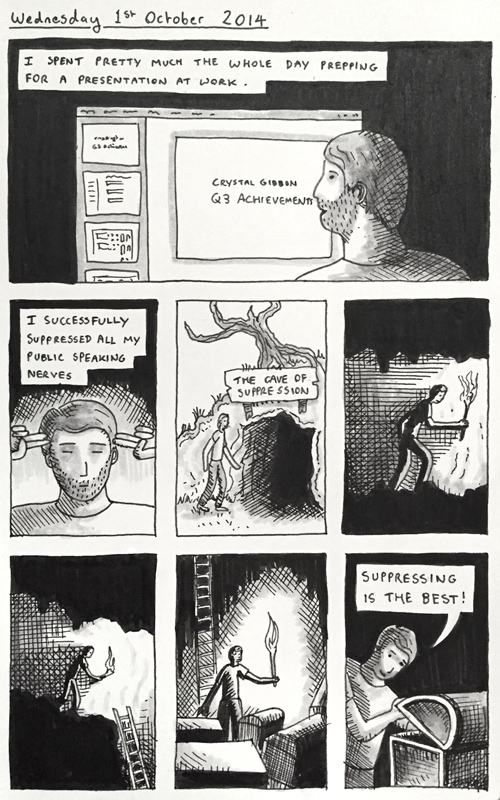 Wednesday 1st October 2014
I SPENT PRETTY MUCH THE WHOLE DAY PREPPING
FOR A PRESENTATION AT WORK.
CRYSTAL GIBBON
Q3 ACHIEVEMENTS
I SUCCESSFULLY
SUPPRESSED ALL MY
PUBLIC SPEAKING
NERVES
THE CAVE OF
SUPPRESSION
SUPPRESSING
IS THE BEST!